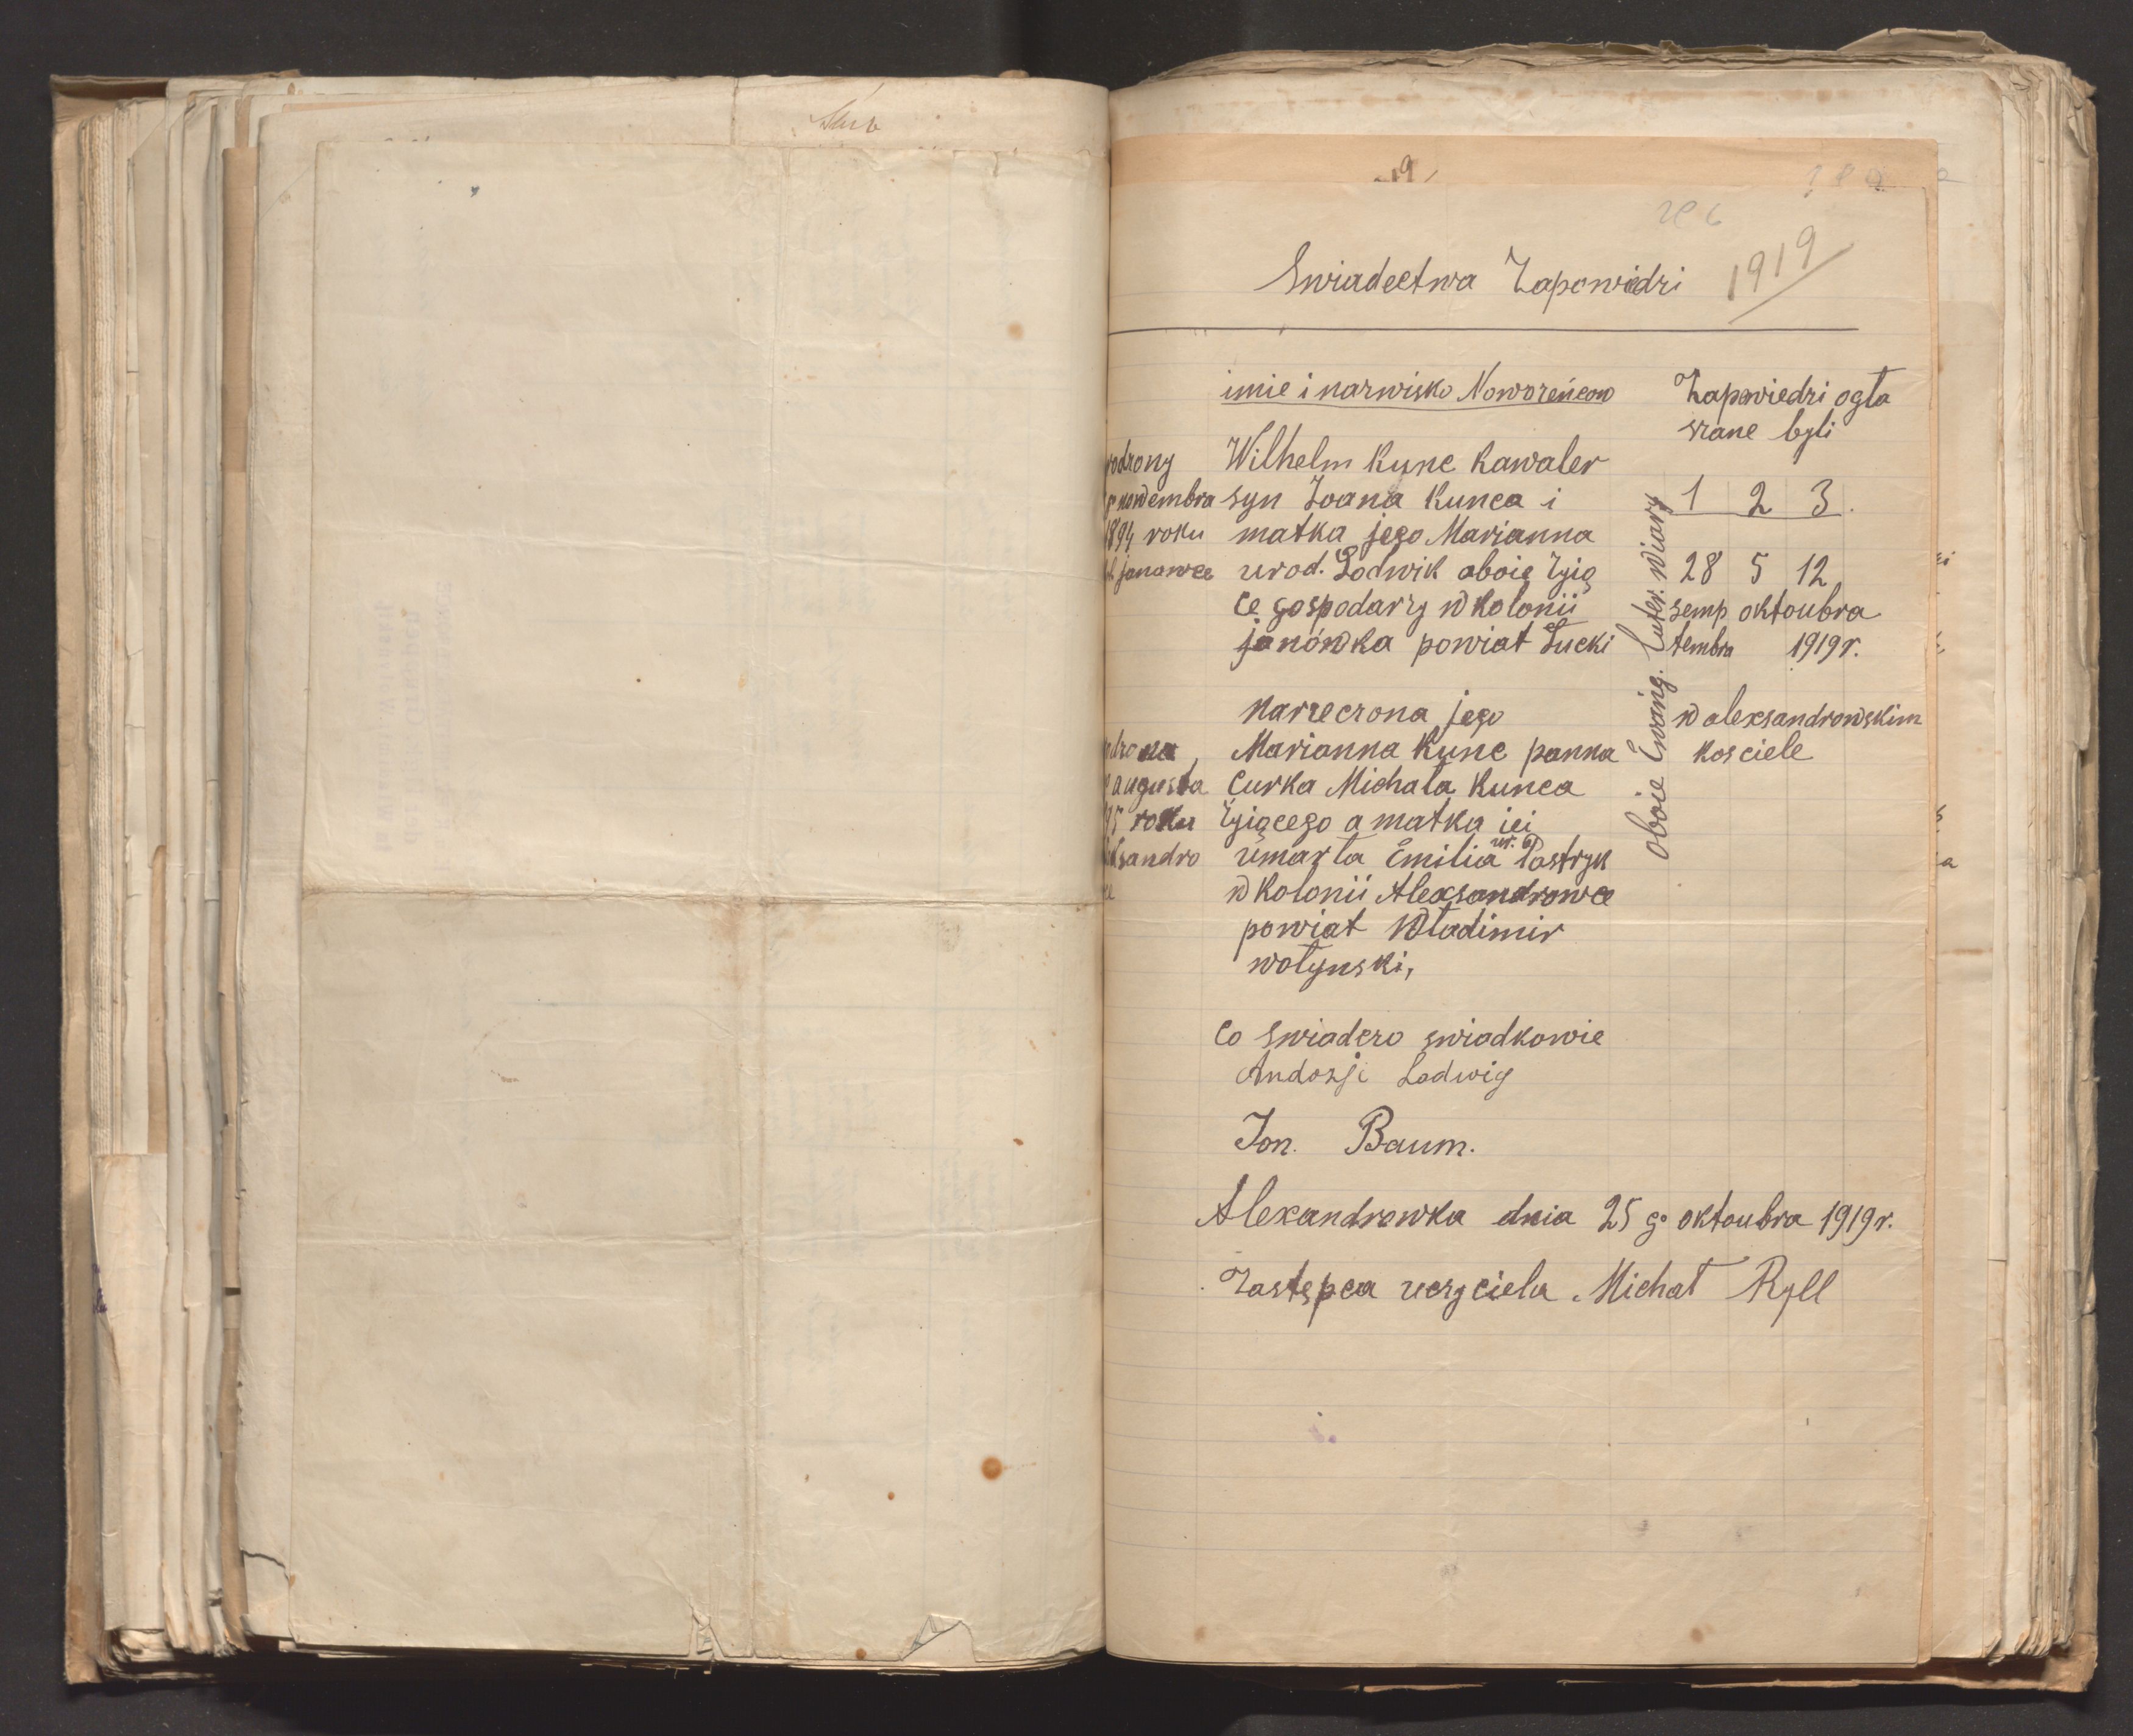 1919
Swiadectwa Zapowiedzi
imie i nazwisko Nowożeńcow
Zapowiedzi ogła
szane byli
rodzony Wilhelm Kunc Kawaler
nowembra syn Joana Kunca i
1 2 3.
1894 roku matka jego Marianna
janowce urod. Lodwik oboie żyią
28 5 12
ce gospodarzy w kolonii
semp oktoubra
janówka powiat Łucki
tembra 1919 r.
oboie Ewang. Luter. Wiary
narzeczona jego
w alexsandrowskim
Marianna Kunc panna
kosciele
augusta Curka Michała Kunca
95 roku żyiącego a matka iei
ksandro umarła Emilia ur. Pastryk
w Kolonii Alexsandrowce
powiat Wladimir
wołynski,
Co swiadczo swiadkowie
Andozji Lodwig
Jon. Baum.
Alexandrowka dnia 25 go oktoubra 1919 r.
Zastępca uczyciela Michał Ryll